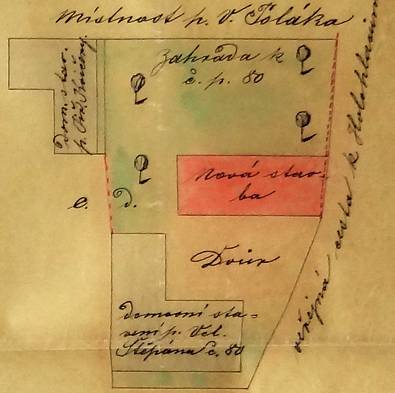 Místnost p. V. Poláka
Zahrada k
č. p. 80
Dom. stav.
p.
Nová stav-
ba
c. d.
Dvůr
domovní sta-
vení p. Vel.
Štěpána č. 80
veřejná cesta k Holohlavům